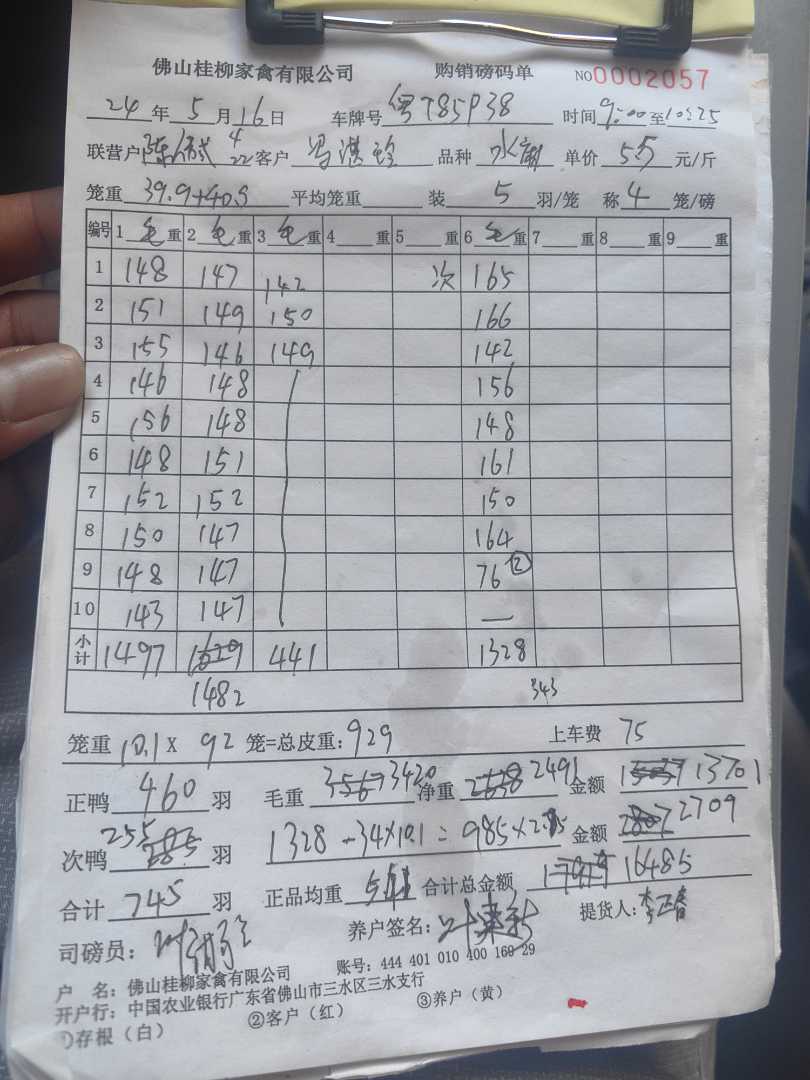 佛山桂柳家禽有限公司 购销磅码单 NO0002057
24年5月16日 车牌号 粤T85P38 时间9:00至10:25
联营户 4/22 客户 冯 品种 水 单价 5.5 元/斤
笼重 39.9+40.9 平均笼重 装 5 羽/笼 称 4 笼/磅
编号 1 毛 重 2 毛 重 3 毛 重 4 重 5 重 6 毛 重 7 重 8 重 9 重
1 148 147 142 次 165
2 151 149 150 166
3 155 146 149 142
4 146 148 156
5 156 148 148
6 148 151 161
7 152 152 150
8 150 147 164
9 148 147 76 ②
10 143 147 —
小计 1497 441 1328
1482 343
笼重 10.1 X 92 笼=总皮重: 929 上车费 75
正鸭 460 羽 毛重 3420 净重 2491 金额 13701
次鸭 285 羽 1328-34×10.1=985×2.75 金额 2709
合计 745 羽 正品均重 合计总金额 16485
司磅员: 养户签名: 提货人:
户 名: 佛山桂柳家禽有限公司 账号: 444 401 010 400 169 29
开户行: 中国农业银行广东省佛山市三水区三水支行
①存根（白） ②客户（红） ③养户（黄）